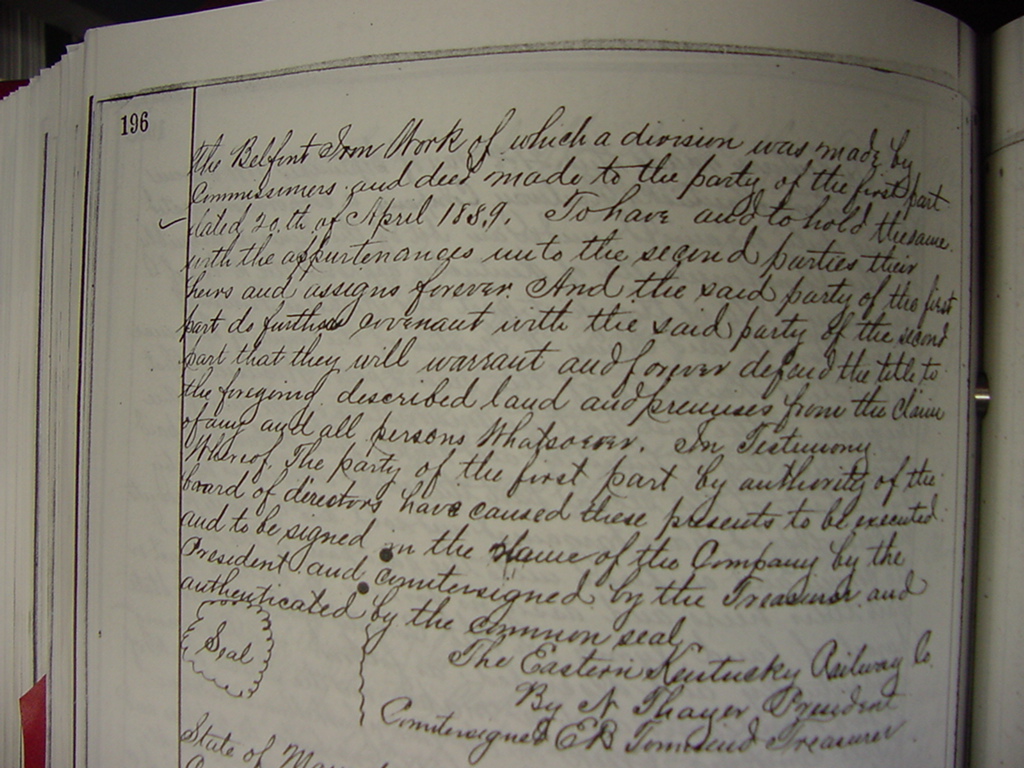 196
the Belfont Iron Work of which a division was made by
Commissioners and deed made to the party of the first part
dated 20.th of April 1889. To have and to hold the same
with the appurtenances unto the second parties their
heirs and assigns forever. And the said party of the first
part do further covenant with the said party of the second
part that they will warrant and forever defend the title to
the foregoing described land and premises from the claim
of any and all persons Whatsoever. In Testimony
Whereof, The party of the first part by authority of the
board of directors have caused these presents to be executed
and to be signed in the Name of the Company by the
President and countersigned by the Treasurer and
authenticated by the common seal,
Seal
The Eastern Kentucky Railway Co.
By N Thayer President
Countersigned EB Townsend Treasurer
State of